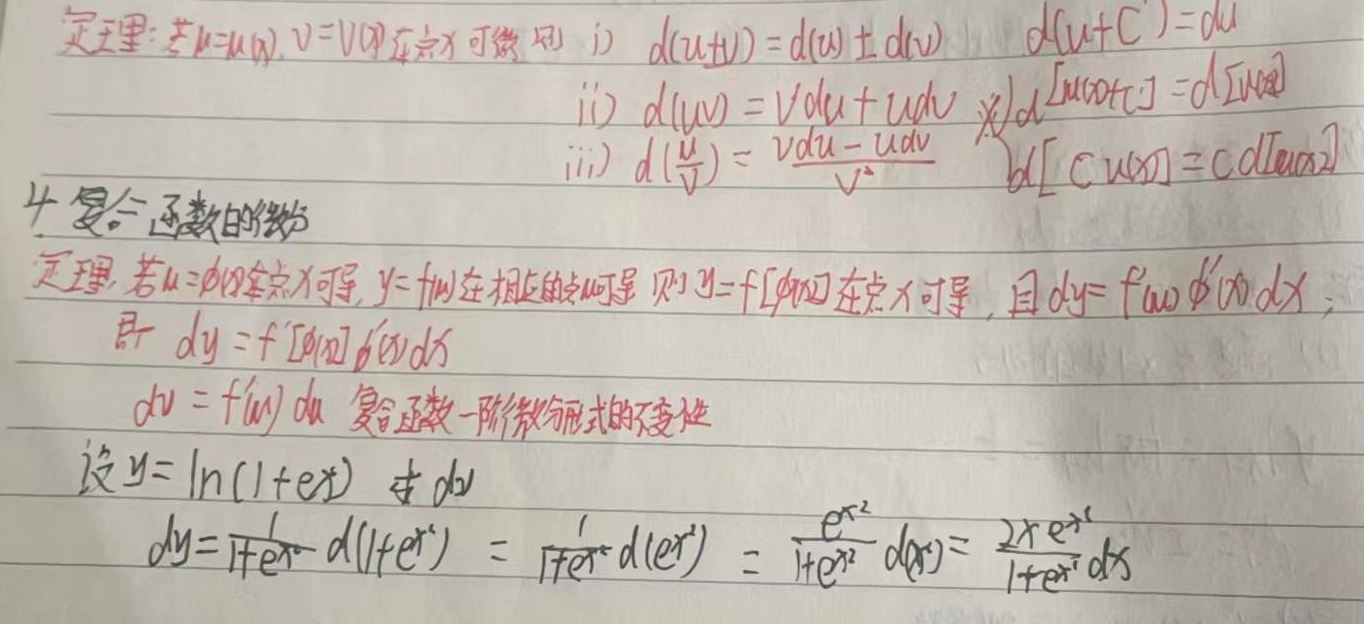 定理: 若u=u(x), v=v(x)在点x可微 则 i) d(u±v)=d(u)±d(v) d(u+C)=du
ii) d(uv)=vdu+udv ※)d[u(x)+c]=d[u(x)]
iii) d(u/v)=(vdu-udv)/v² d[Cu(x)]=cd[u(x)]
4 复合函数的微分
定理, 若u=φ(x)在点x可导, y=f(u)在相应的点u可导 则y=f[φ(x)]在点x可导, 且dy=f'(u)φ'(x)dx;
即 dy=f'[φ(x)]φ'(x)dx
dy=f'(u)du 复合函数一阶微分形式的不变性
设y=ln(1+eˣ²) 求dy
dy=1/(1+eˣ²) d(1+eˣ²) = 1/(1+eˣ²) d(eˣ²) = eˣ²/(1+eˣ²) d(x²) = 2xeˣ²/(1+eˣ²) dx